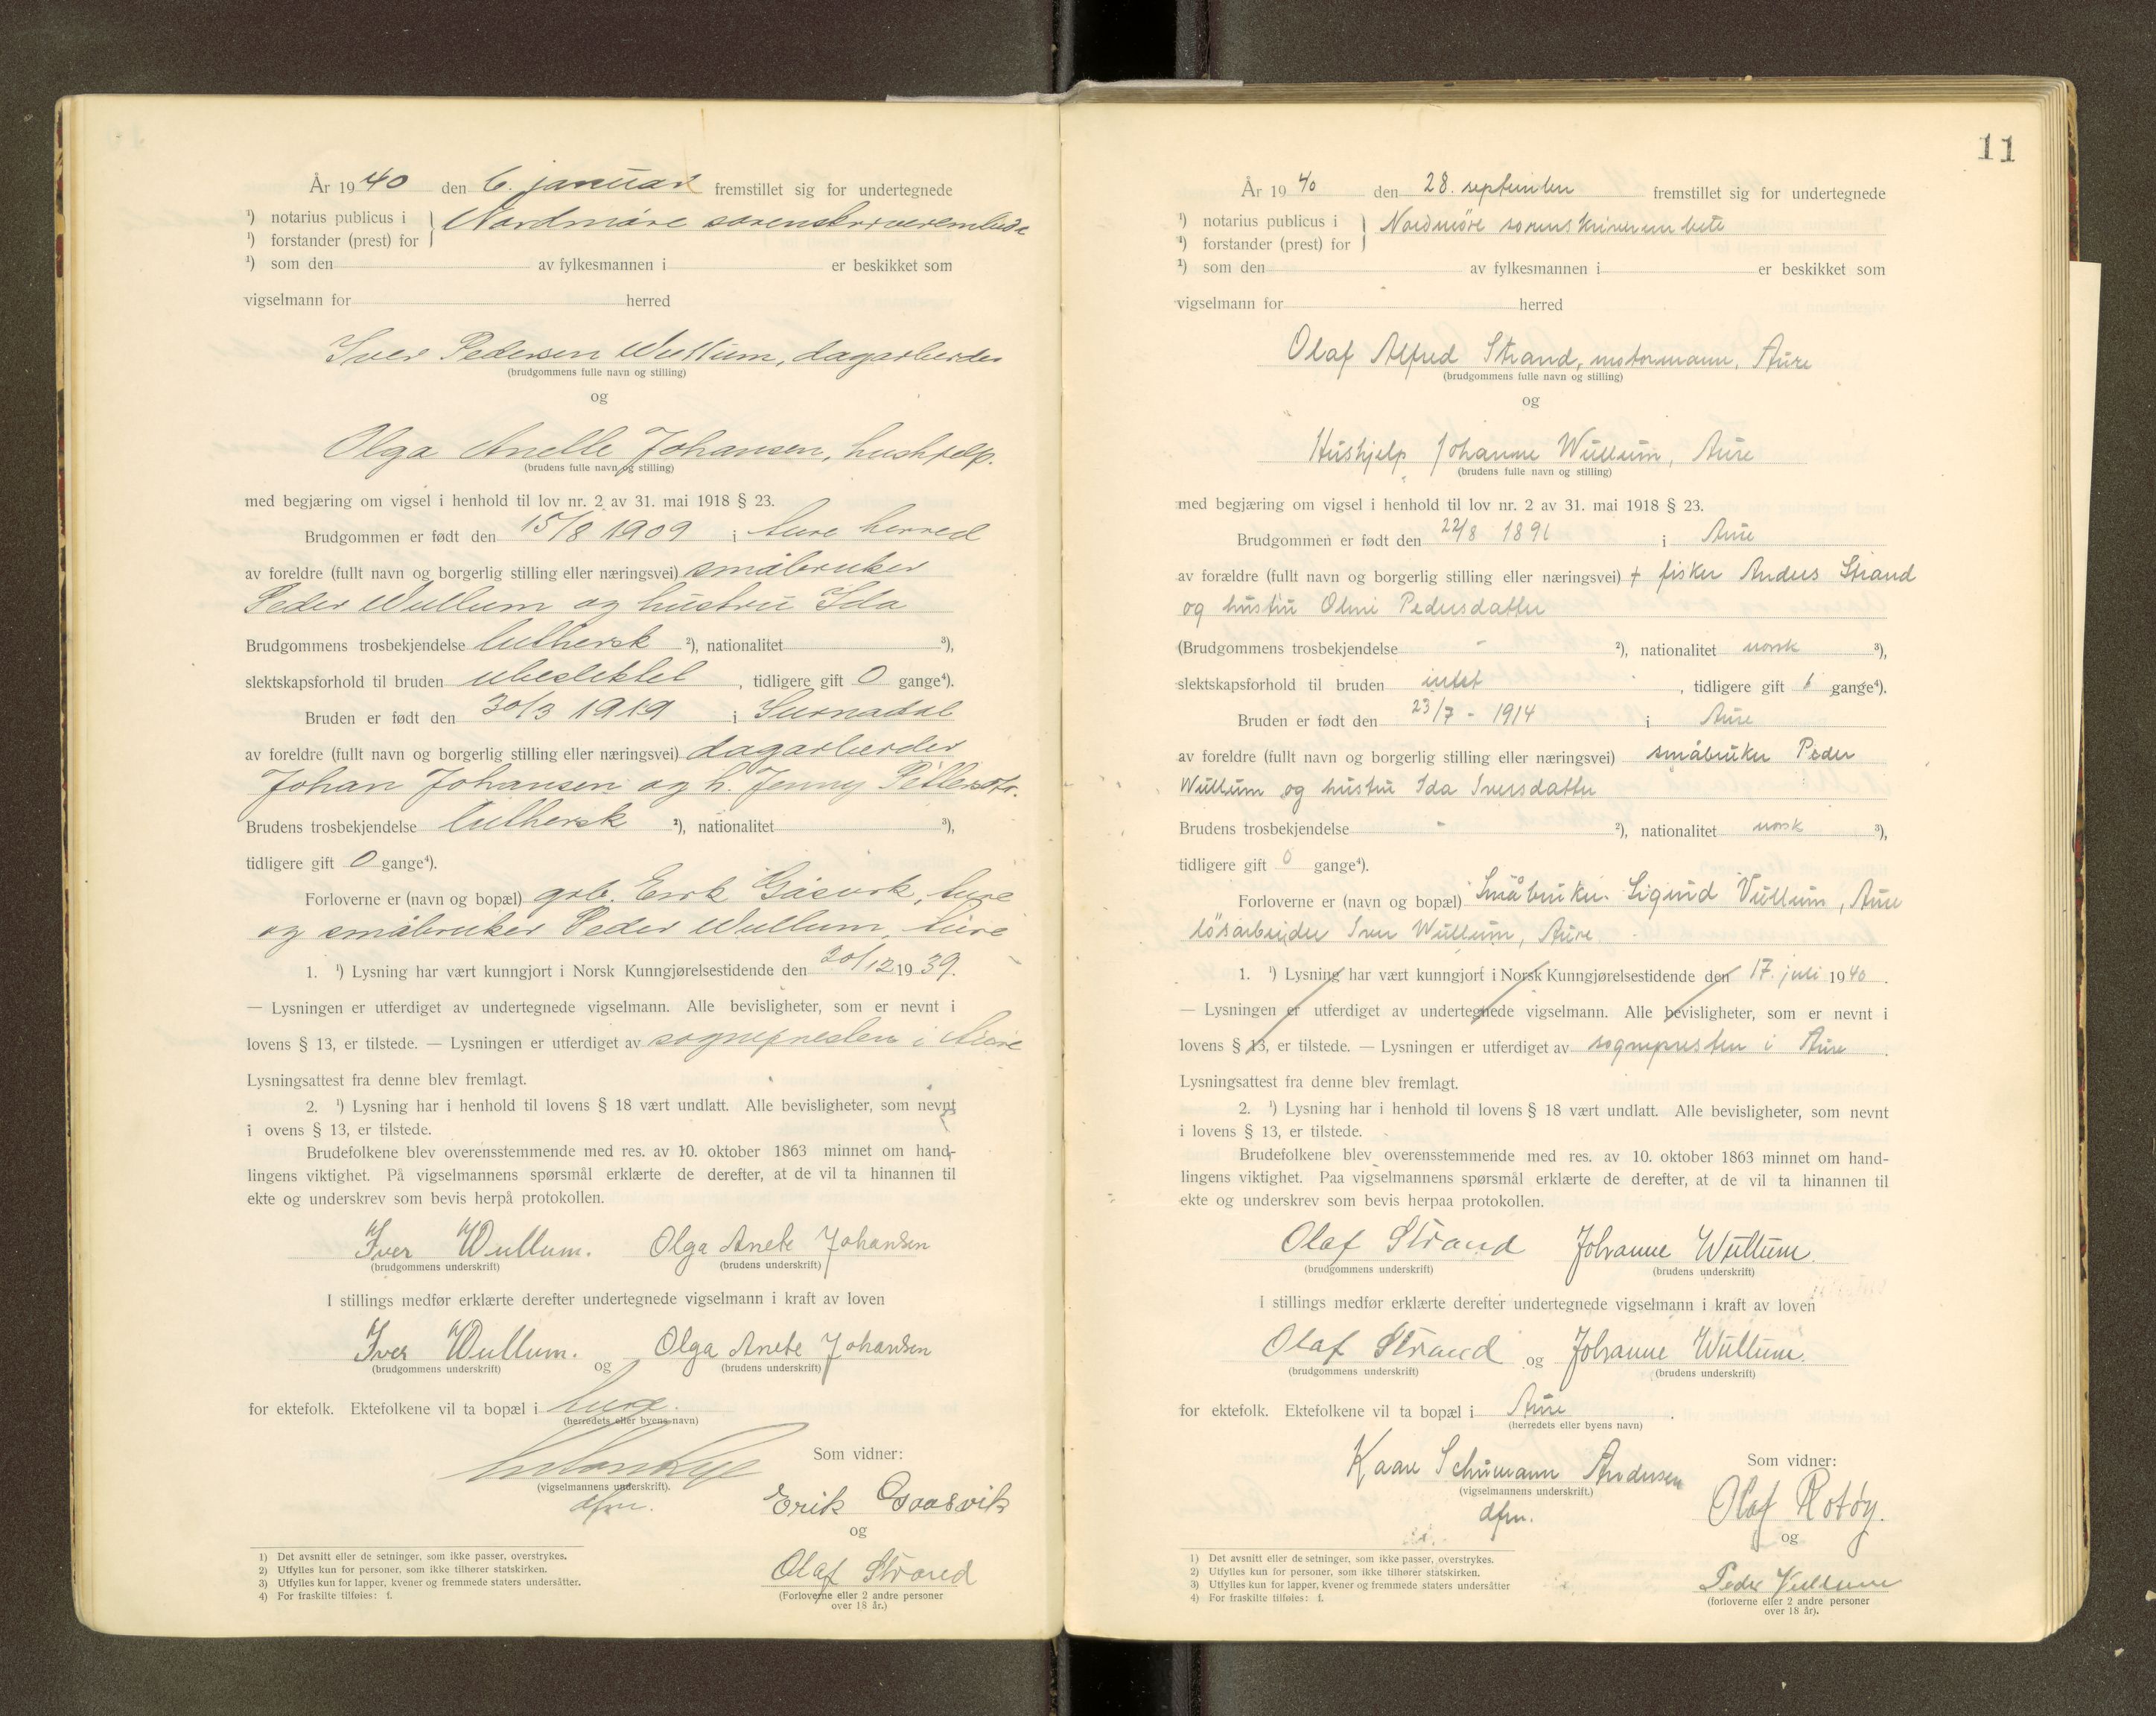 År 1940 den 6. januar fremstillet sig for undertegnede
¹) notarius publicus i
¹) forstander (prest) for
Nordmøre sorenskriverembede
¹) som den av fylkesmannen i er beskikket som
vigselmann for herred
Iver Pedersen Wullum, dagarbeider
(brudgommens fulle navn og stilling)
og
Olga Anette Johansen, hushjelp.
(brudens fulle navn og stilling)
med begjæring om vigsel i henhold til lov nr. 2 av 31. mai 1918 § 23.
Brudgommen er født den 15/8 1909 i Aure herred
av foreldre (fullt navn og borgerlig stilling eller næringsvei) småbruker
Peder Wullum og hustru Ida
Brudgommens trosbekjendelse luthersk ²), nationalitet ³),
slektskapsforhold til bruden ubeslektet, tidligere gift 0 gange⁴).
Bruden er født den 30/3 1919 i Surnadal
av foreldre (fullt navn og borgerlig stilling eller næringsvei) dagarbeider
Johan Johansen og h. Jenny Pettersdtr.
Brudens trosbekjendelse luthersk ²), nationalitet ³),
tidligere gift 0 gange⁴).
Forloverne er (navn og bopæl) grb. Erik Gåsvik, Aure
og småbruker Peder Wullum, Aure
1. ¹) Lysning har vært kunngjort i Norsk Kunngjørelsestidende den 20/12 1939.
— Lysningen er utferdiget av undertegnede vigselmann. Alle bevisligheter, som er nevnt i
lovens § 13, er tilstede. — Lysningen er utferdiget av sognepresten i Aure
Lysningsattest fra denne blev fremlagt.
2. ¹) Lysning har i henhold til lovens § 18 vært undlatt. Alle bevisligheter, som nevnt
i ovens § 13, er tilstede.
Brudefolkene blev overensstemmende med res. av 10. oktober 1863 minnet om hand-
lingens viktighet. På vigselmannens spørsmål erklærte de derefter, at de vil ta hinannen til
ekte og underskrev som bevis herpå protokollen.
Iver Wullum. Olga Anete Johansen
(brudgommens underskrift) (brudens underskrift)
I stillings medfør erklærte derefter undertegnede vigselmann i kraft av loven
Iver Wullum. og Olga Anete Johansen
(brudgommens underskrift) (brudens underskrift)
for ektefolk. Ektefolkene vil ta bopæl i Aure.
(herredets eller byens navn)
Som vidner:
(vigselmannens underskrift).
dfm.
Erik Gaasvik
og
Olaf Strand
(Forloverne eller 2 andre personer
over 18 år.)
1) Det avsnitt eller de setninger, som ikke passer, overstrykes.
2) Utfylles kun for personer, som ikke tilhører statskirken.
3) Utfylles kun for lapper, kvener og fremmede staters undersåtter.
4) For fraskilte tilføies: f.
11
År 1940 den 28. september fremstillet sig for undertegnede
¹) notarius publicus i
¹) forstander (prest) for
Nordmøre sorenskriverembete
¹) som den av fylkesmannen i er beskikket som
vigselmann for herred
Olaf Alfred Strand, motormann, Aure
(brudgommens fulle navn og stilling)
og
Hushjelp Johanne Wullum, Aure
(brudens fulle navn og stilling)
med begjæring om vigsel i henhold til lov nr. 2 av 31. mai 1918 § 23.
Brudgommen er født den 22/8 1891 i Aure
av forældre (fullt navn og borgerlig stilling eller næringsvei) + fisker Anders Strand
og hustru Oline Pedersdatter
(Brudgommens trosbekjendelse - ²), nationalitet norsk ³),
slektskapsforhold til bruden intet, tidligere gift gange⁴).
Bruden er født den 23/7 - 1914 i Aure
av foreldre (fullt navn og borgerlig stilling eller næringsvei) småbruker Peder
Wullum og hustru Ida Iversdatter
Brudens trosbekjendelse - ²), nationalitet norsk ³),
tidligere gift 0 gange⁴).
Forloverne er (navn og bopæl) Småbruker Sigurd Vullum, Aure
løsarbeider Iver Wullum, Aure
1. ¹) Lysning har vært kunngjort i Norsk Kunngjørelsestidende den 17. juli 1940.
— Lysningen er utferdiget av undertegnede vigselmann. Alle bevisligheter, som er nevnt i
lovens § 13, er tilstede. — Lysningen er utferdiget av sognepresten i Aure.
Lysningsattest fra denne blev fremlagt.
2. ¹) Lysning har i henhold til lovens § 18 vært undlatt. Alle bevisligheter, som nevnt
i lovens § 13, er tilstede.
Brudefolkene blev overensstemmende med res. av 10. oktober 1863 minnet om hand-
lingens viktighet. Paa vigselmannens spørsmål erklærte de derefter, at de vil ta hinannen til
ekte og underskrev som bevis herpaa protokollen.
Olaf Strand Johanne Wullum.
(brudgommens underskrift) (brudens underskrift)
I stillings medfør erklærte derefter undertegnede vigselmann i kraft av loven
Olaf Strand og Johanne Wullum.
(brudgommens underskrift) (brudens underskrift)
for ektefolk. Ektefolkene vil ta bopæl i Aure.
(herredets eller byens navn)
Som vidner:
Kaare Schumann Andersen
(vigselmannens underskrift.)
dfm.
Olaf Rotøy.
og
Peder Vullum
(forloverne eller 2 andre personer
over 18 år).
1) Det avsnitt eller de setninger, som ikke passer, overstrykes.
2) Utfylles kun for personer, som ikke tilhører statskirken.
3) Utfylles kun for lapper, kvener og fremmede staters undersåtter
4) For fraskilte tilføies: f.